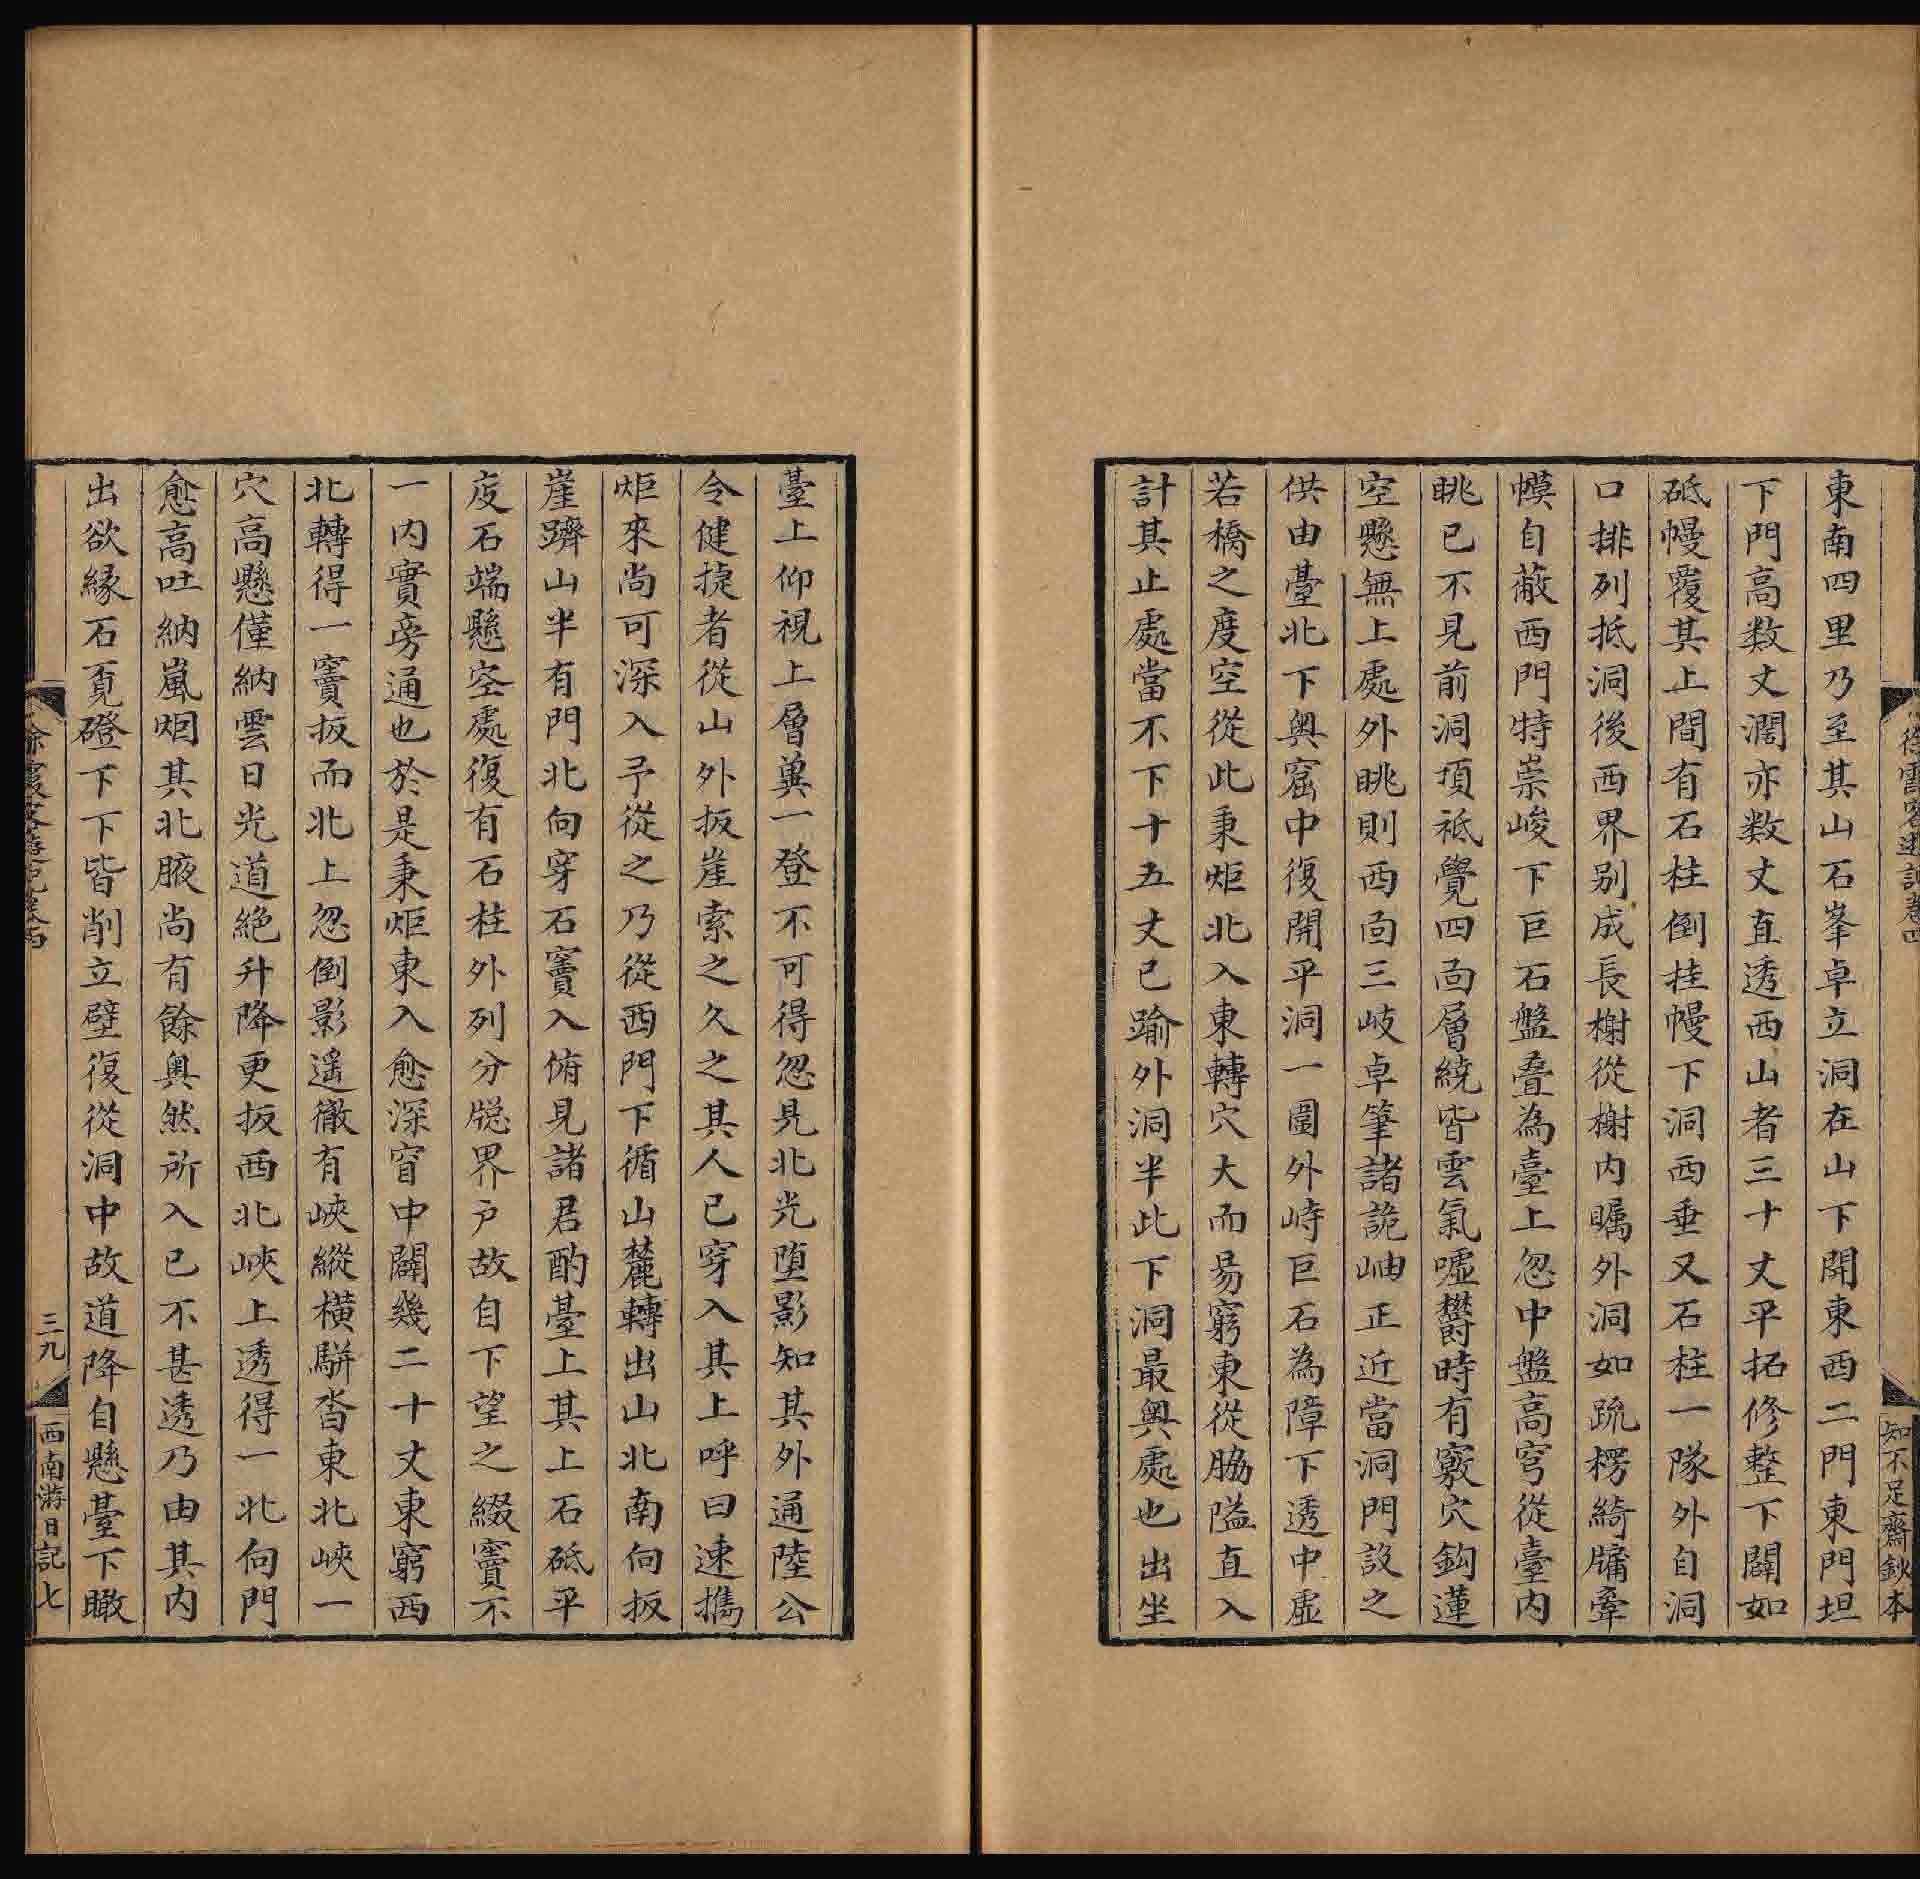 東南四里乃至其山石峯卓立洞在山下開東西二門東門坦
下門高数丈濶亦数丈直透西山者三十丈平拓修整下闢如
砥幔覆其上間有石柱倒挂幔下洞西垂又石柱一隊外自洞
口排列抵洞後西界别成長榭從榭内矚外洞如疏楞綺牖牽
幙自蔽西門特崇峻下巨石盤疊為臺上忽中盤高穹從臺内
眺已不見前洞頂祗覺四面層繞皆雲氣嘘欝時有竅穴鈎蓮
空懸無上處外眺則西面三岐卓筆諸詭岫正近當洞門設之
供由臺北下奥窟中復開平洞一圍外峙巨石為障下透中虛
若橋之度空從此秉炬北入東轉穴大而易窮東從脇隘直入
計其止處當不下十五丈已踰外洞半此下洞最奥處也出坐
臺上仰視上層兾一登不可得忽見北光堕影知其外通陸公
令健捷者從山外扳崖索之久之其人已穿入其上呼曰速攜
炬來尚可深入予從之乃從西門下循山麓轉出山北南向扳
崖躋山半有門北向穿石竇入俯見諸君酌臺上其上石砥平
庋石端懸空處復有石柱外列分牕界户故自下望之綴竇不
一内實旁通也於是秉炬東入愈深窅中闢幾二十丈東窮西
北轉得一竇扳而北上忽倒影遥徹有峽縱横駢沓東北峽一
穴高懸僅納雲日光道絶升降更扳西北峽上透得一北向門
愈高吐納嵐烟其北腋尚有餘奥然所入已不甚透乃由其内
出欲緣石覔磴下下皆削立壁復從洞中故道降自懸臺下瞰
知不足齋鈔本
三九
西南游日記七